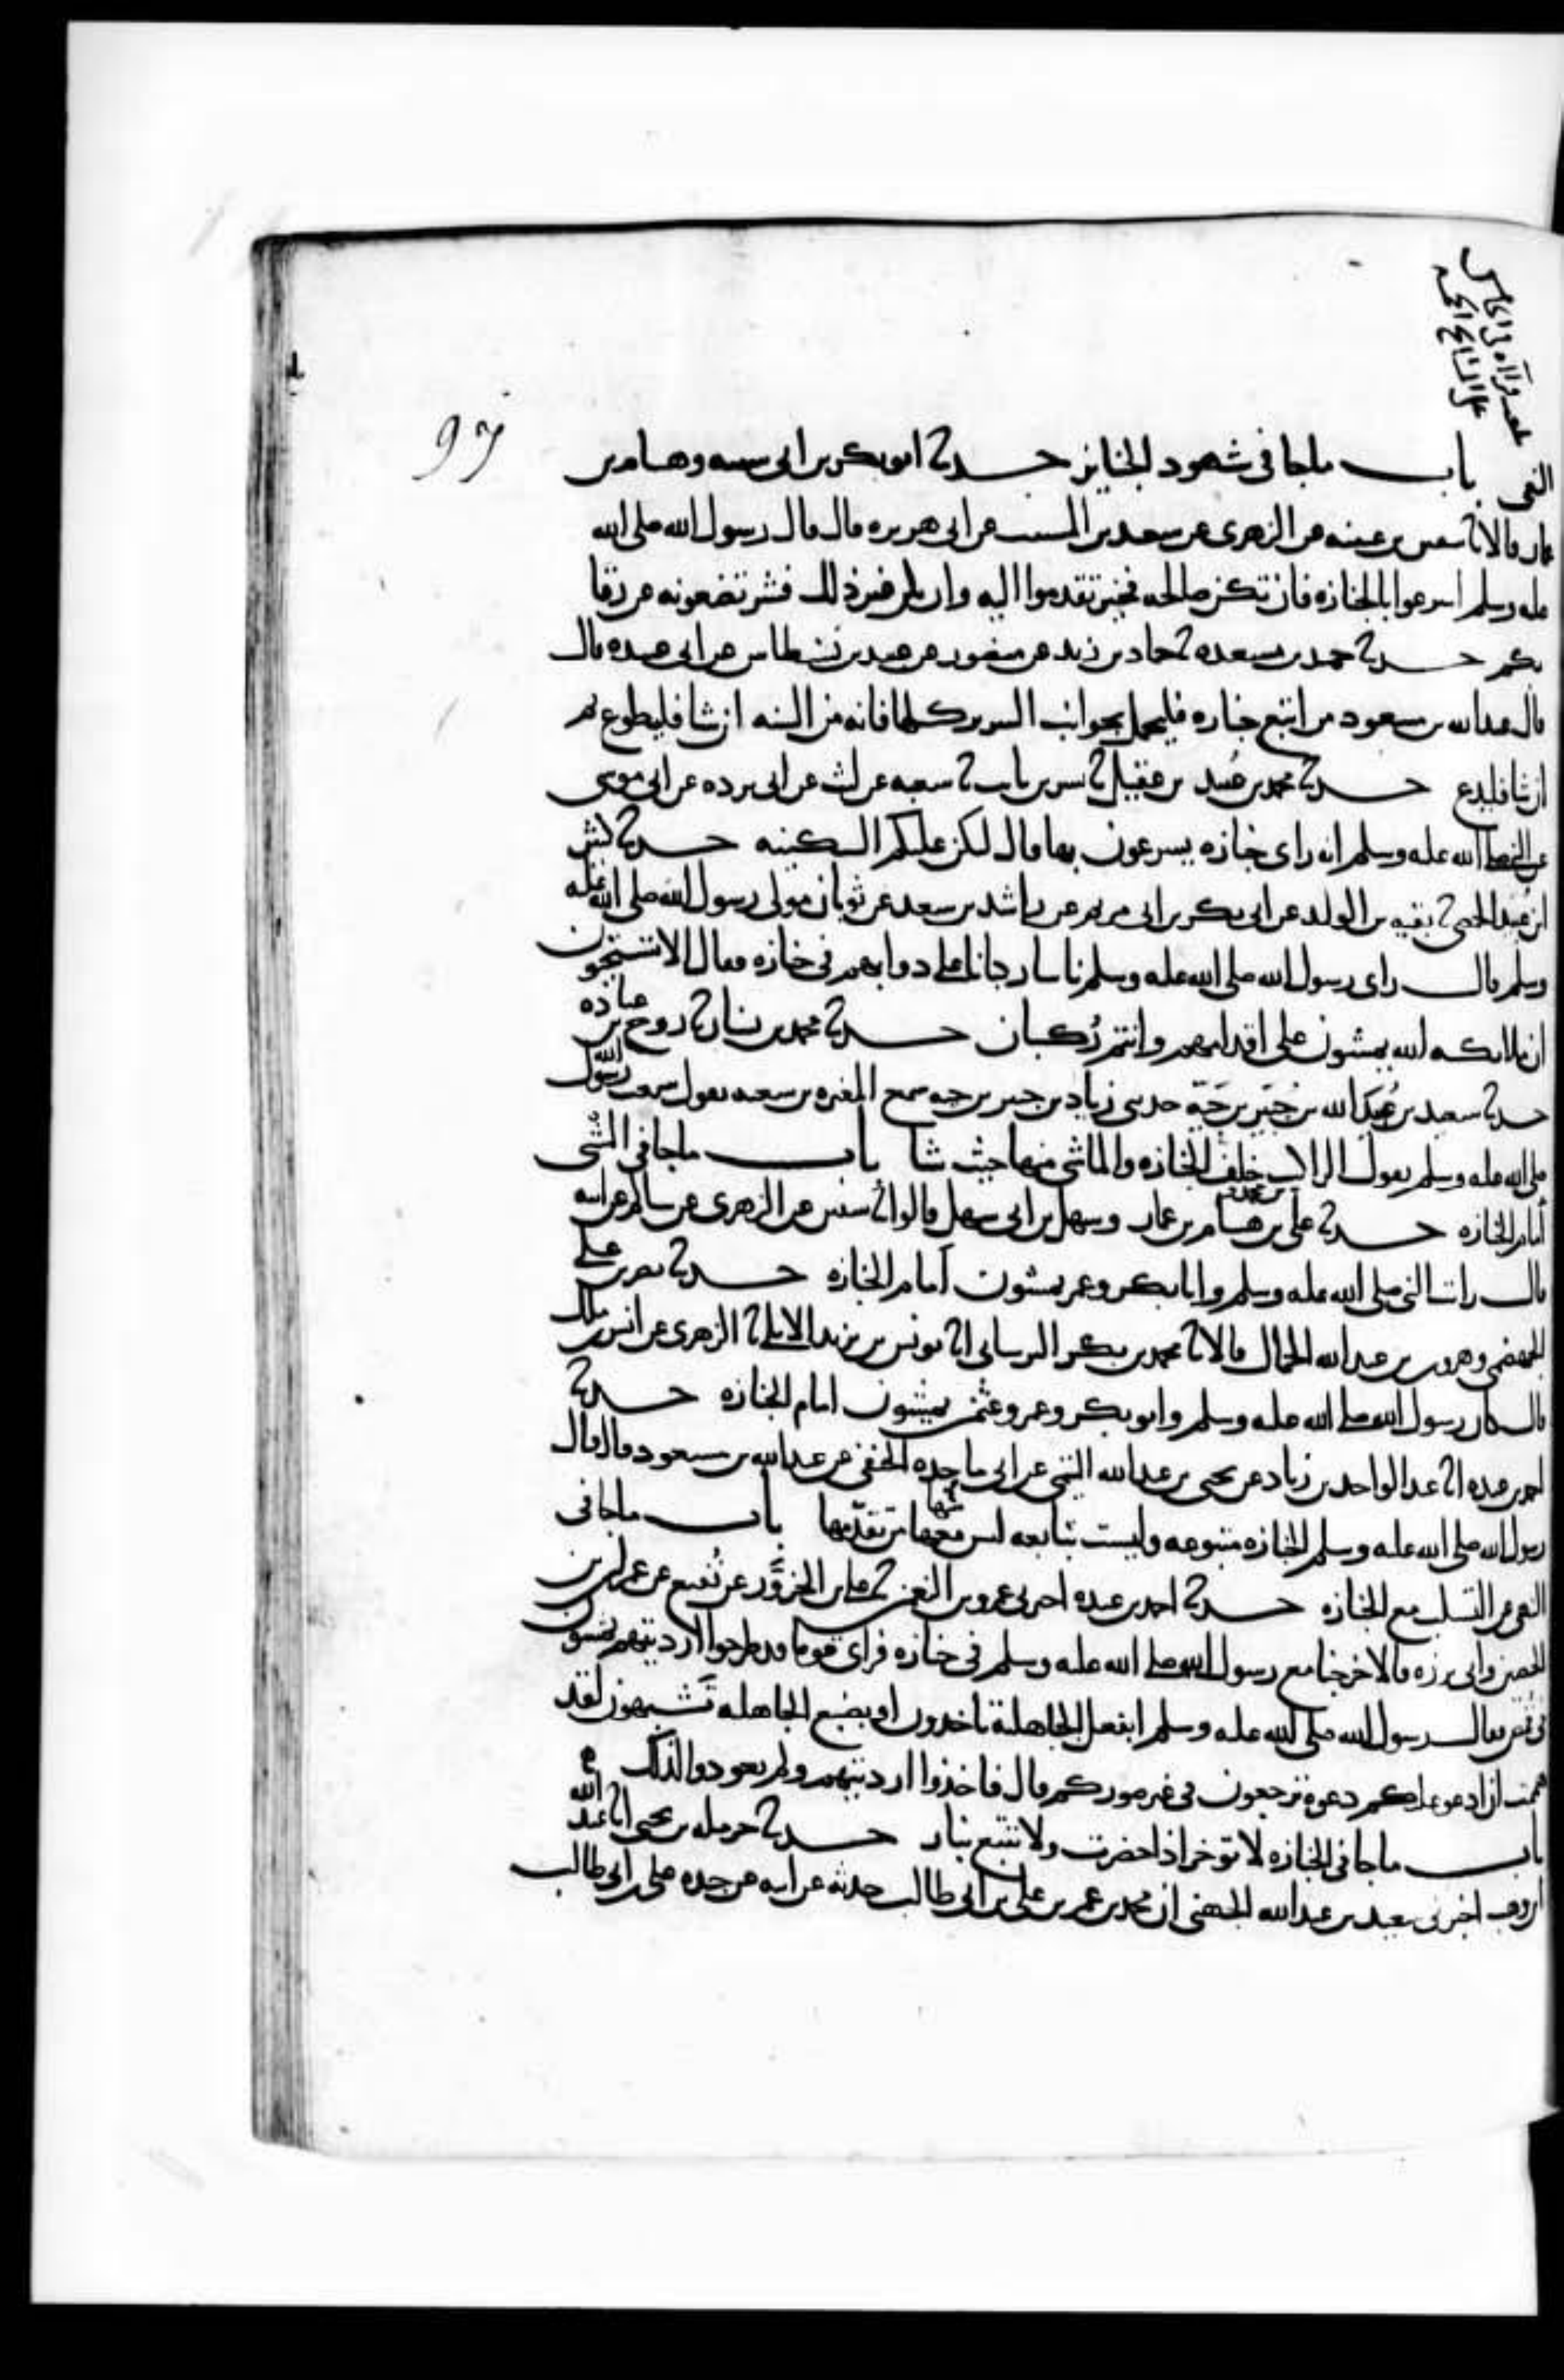 باب ماجا في شهود الجنايز حدثنا ابو بكر بن ابي شيبة وهشام بن
عمار قالا ثنا سفين بن عيينه عن الزهري عن سعيد بن المسيب عن ابي هريره قال قال رسول الله صلى الله
عليه وسلم اسرعوا بالجنازه فان تكن صالحه فخير تقدموا اليه وان يكن غير ذلك فشر تضعونه عن رقا
بكم حدثنا حميد بن مسعده ثنا حماد بن زيد عن منصور عن عبيد بن نسطاس عن ابي عبيده قال
قال عبدالله بن مسعود من اتبع جنازه فليحمل بجوانب السرير كلها فانه من السنه ان شا فليطوع ثم
ان شا فليدع حدثنا محمد بن عبيد بن عقيل ثنا بشر بن ثابت ثنا شعبه عن ليث عن ابي برده عن ابي موسى
عن النبي صلى الله عليه وسلم انه راى جنازه يسرعون بها قال لتكن عليكم السكينه حدثنا كثير
ابن عبيد الحمصي ثنا بقيه بن الوليد عن ابي بكر بن ابي مريم عن راشد بن سعد عن ثوبان مولى رسول الله صلى الله عليه
وسلم قال راى رسول الله صلى الله عليه وسلم ناسا ركبانا على دوابهم في جنازه فقال الا تستحيون
ان ملائكه الله يمشون على اقدامهم وانتم ركبان حدثنا محمد بن بشار ثنا روح بن عباده
حدثنا سعيد بن عبيد الله بن جبير بن حية حدثني زياد بن جبير بن حيه سمع المغيره بن شعبه يقول سمعت رسول الله
صلى الله عليه وسلم يقول الراكب خلف الجنازه والماشي منها حيث شا باب ماجا في المشي
أمام الجنازه حدثنا علي بن محمد وهشام بن عمار وسهل بن ابي سهل قالوا ثنا سفين عن الزهري عن سالم عن ابيه
قال رايت النبي صلى الله عليه وسلم وابا بكر وعمر يمشون أمام الجنازه حدثنا نصر بن علي
الجهضمي وهرون بن عبدالله الحمال قالا ثنا محمد بن بكر البرساني انا يونس بن يزيد الايلي عن الزهري عن انس بن ملك
قال كان رسول الله صلى الله عليه وسلم وابو بكر وعمر وعثمن يمشون امام الجنازه حدثنا
احمد بن عبده انا عبد الواحد بن زياد عن يحيى بن عبدالله التيمي عن ابي ماجده الحنفي عن عبدالله بن مسعود قال قال
رسول الله صلى الله عليه وسلم الجنازه متبوعه وليست بتابعه ليس معها من تقدمها باب ماجا في
النهي عن التسلب مع الجنازه حدثنا احمد بن عبده اخبرني عمرو بن النعمن ثنا علي بن الحزور عن نفيع عن عمران بن
الحصين وابي برزه قالا خرجنا مع رسول الله صلى الله عليه وسلم في جنازه فراى قوما قد طرحوا ارديتهم يمشون
في قمص فقال رسول الله صلى الله عليه وسلم ابفعل الجاهلية تاخذون او بصنيع الجاهليه تشبهون لقد
هممت ان ادعو عليكم دعوة ترجعون في غير صوركم قال فاخذوا ارديتهم ولم يعودوا لذلك
باب ماجا في الجنازه لا توخر اذا حضرت ولا تتبع بنار حدثنا حرمله بن يحيى انا عبد الله
ابن وهب اخبرني سعيد بن عبدالله الجهني ان محمد بن عمر بن علي بن ابي طالب حدثه عن ابيه عن جده علي بن ابي طالب